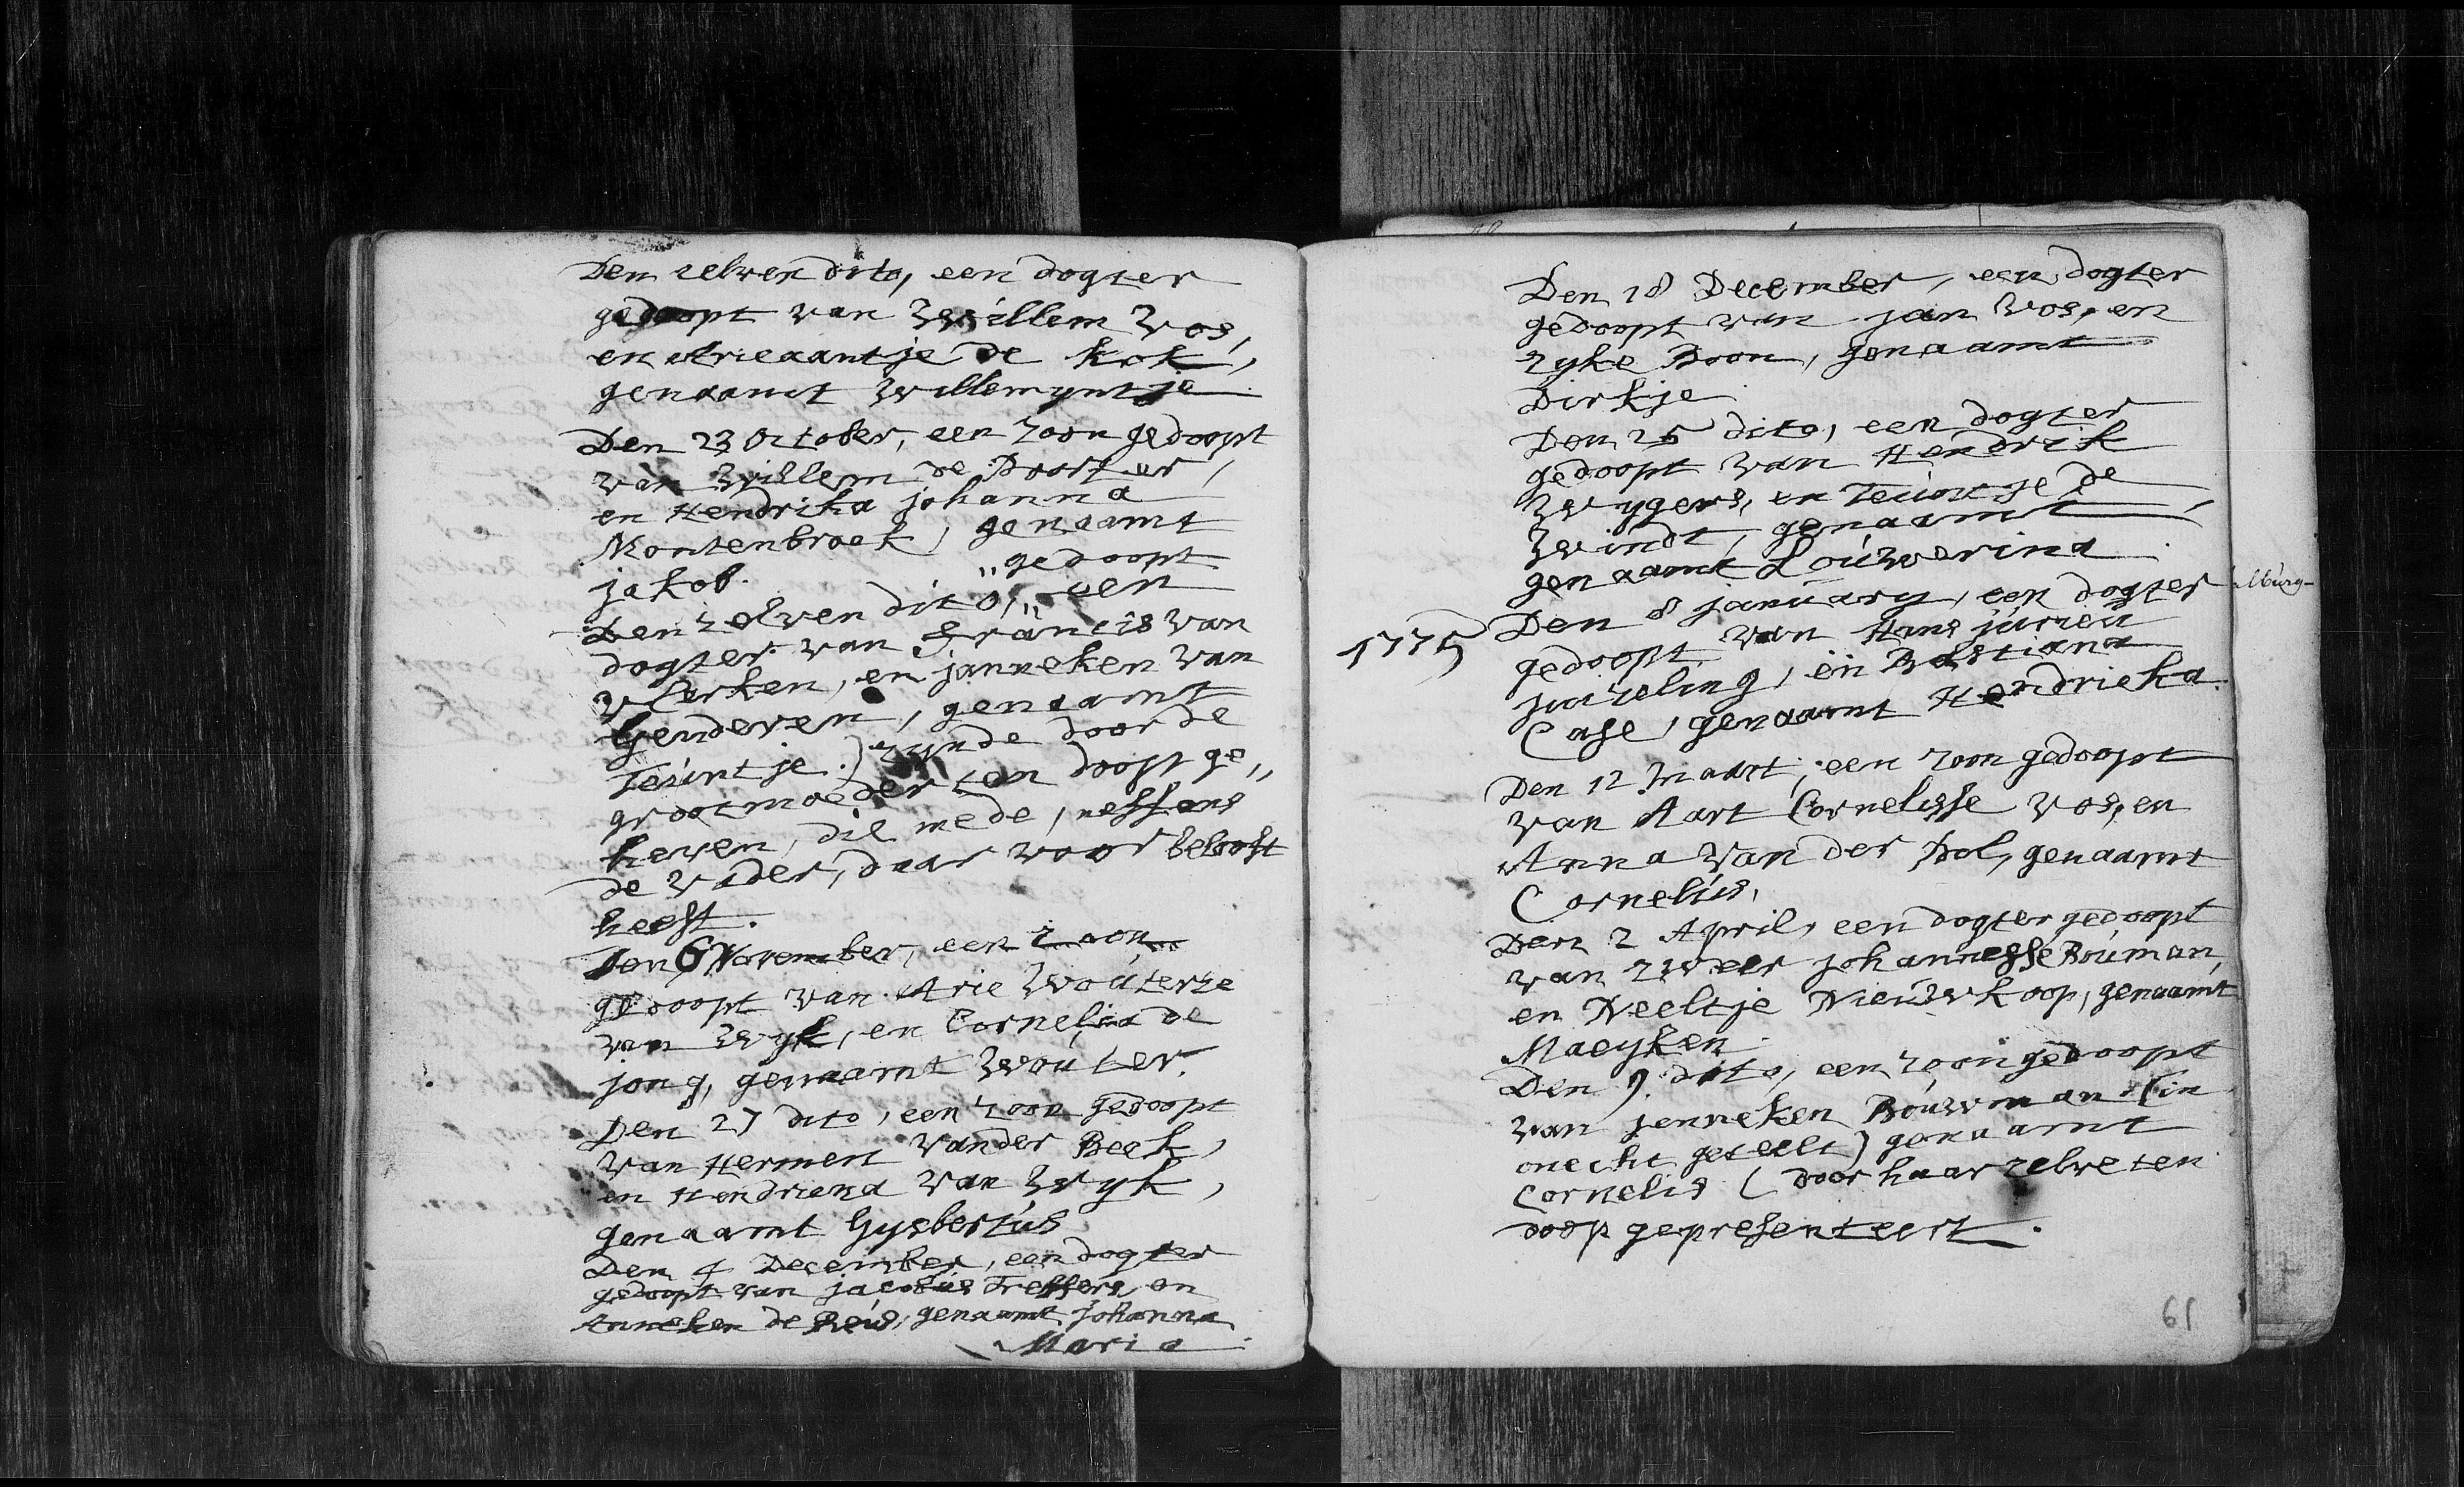 Den zelven dito, een dogter
gedoopt van Willem Vos,
en Arieaantje de Kok,
genaamt Willemyntje
Den 23 October, een zoon gedoopt
van Willem de Poorter,
en Hendrika Johanna
Montenbroek, genaamt
Jakob.
"gedoopt
Den zelven dito," een
dogter van Francis van
Werken, en Janneken van
Genderen, genaamt
Teuntje.) zynde door de
grootmoeder ten doopt ge"
heven, die mede, neffens
de vader, daar voor belooft
heeft.
Den 6 November, een zoon
gedoopt van Arie Wouterze
van Wyk, en Cornelia de
Jong, genaamt Wouter.
Den 27 dito, een zoon gedoopt
van Hermen vander Beek,
en Hendriena van Wyk,
genaamt Gysbertus
Den 4 December, een dogter
gedoopt van Jacobus Treffers, en
Anneken de Reus, genaamt Johanna
Maria
Den 18 December, een dogter
gedoopt van Jan Vos, en
Zyke Boon, genaamt
Dirkje
Den 25 dito, een dogter
gedoopt van Hendrik
Wygers, en Teuntje de
Windt, genaamt,
genaamt Louwerina
1775 Den 8 January, een dogter
gedoopt van Hans Jurren
Juizeling, en Bastiana
Case, genaamt Hendrieka.
Den 12 Maart, een zoon gedoopt
van Aart Cornelisse Vos, en
Anna van der Pol, genaamt
Cornelius.
Den 2 April, een dogter gedoopt
van Zweer Johannesse Bouman,
en Neeltje Nieuwkoop, genaamt
Maeyken.
Den 9. dito, een zoon gedoopt
van Jenneken Bouwman (in
onecht geteelt) genaamt
Cornelis (door haar zelve ten
doop gepresenteert.
61